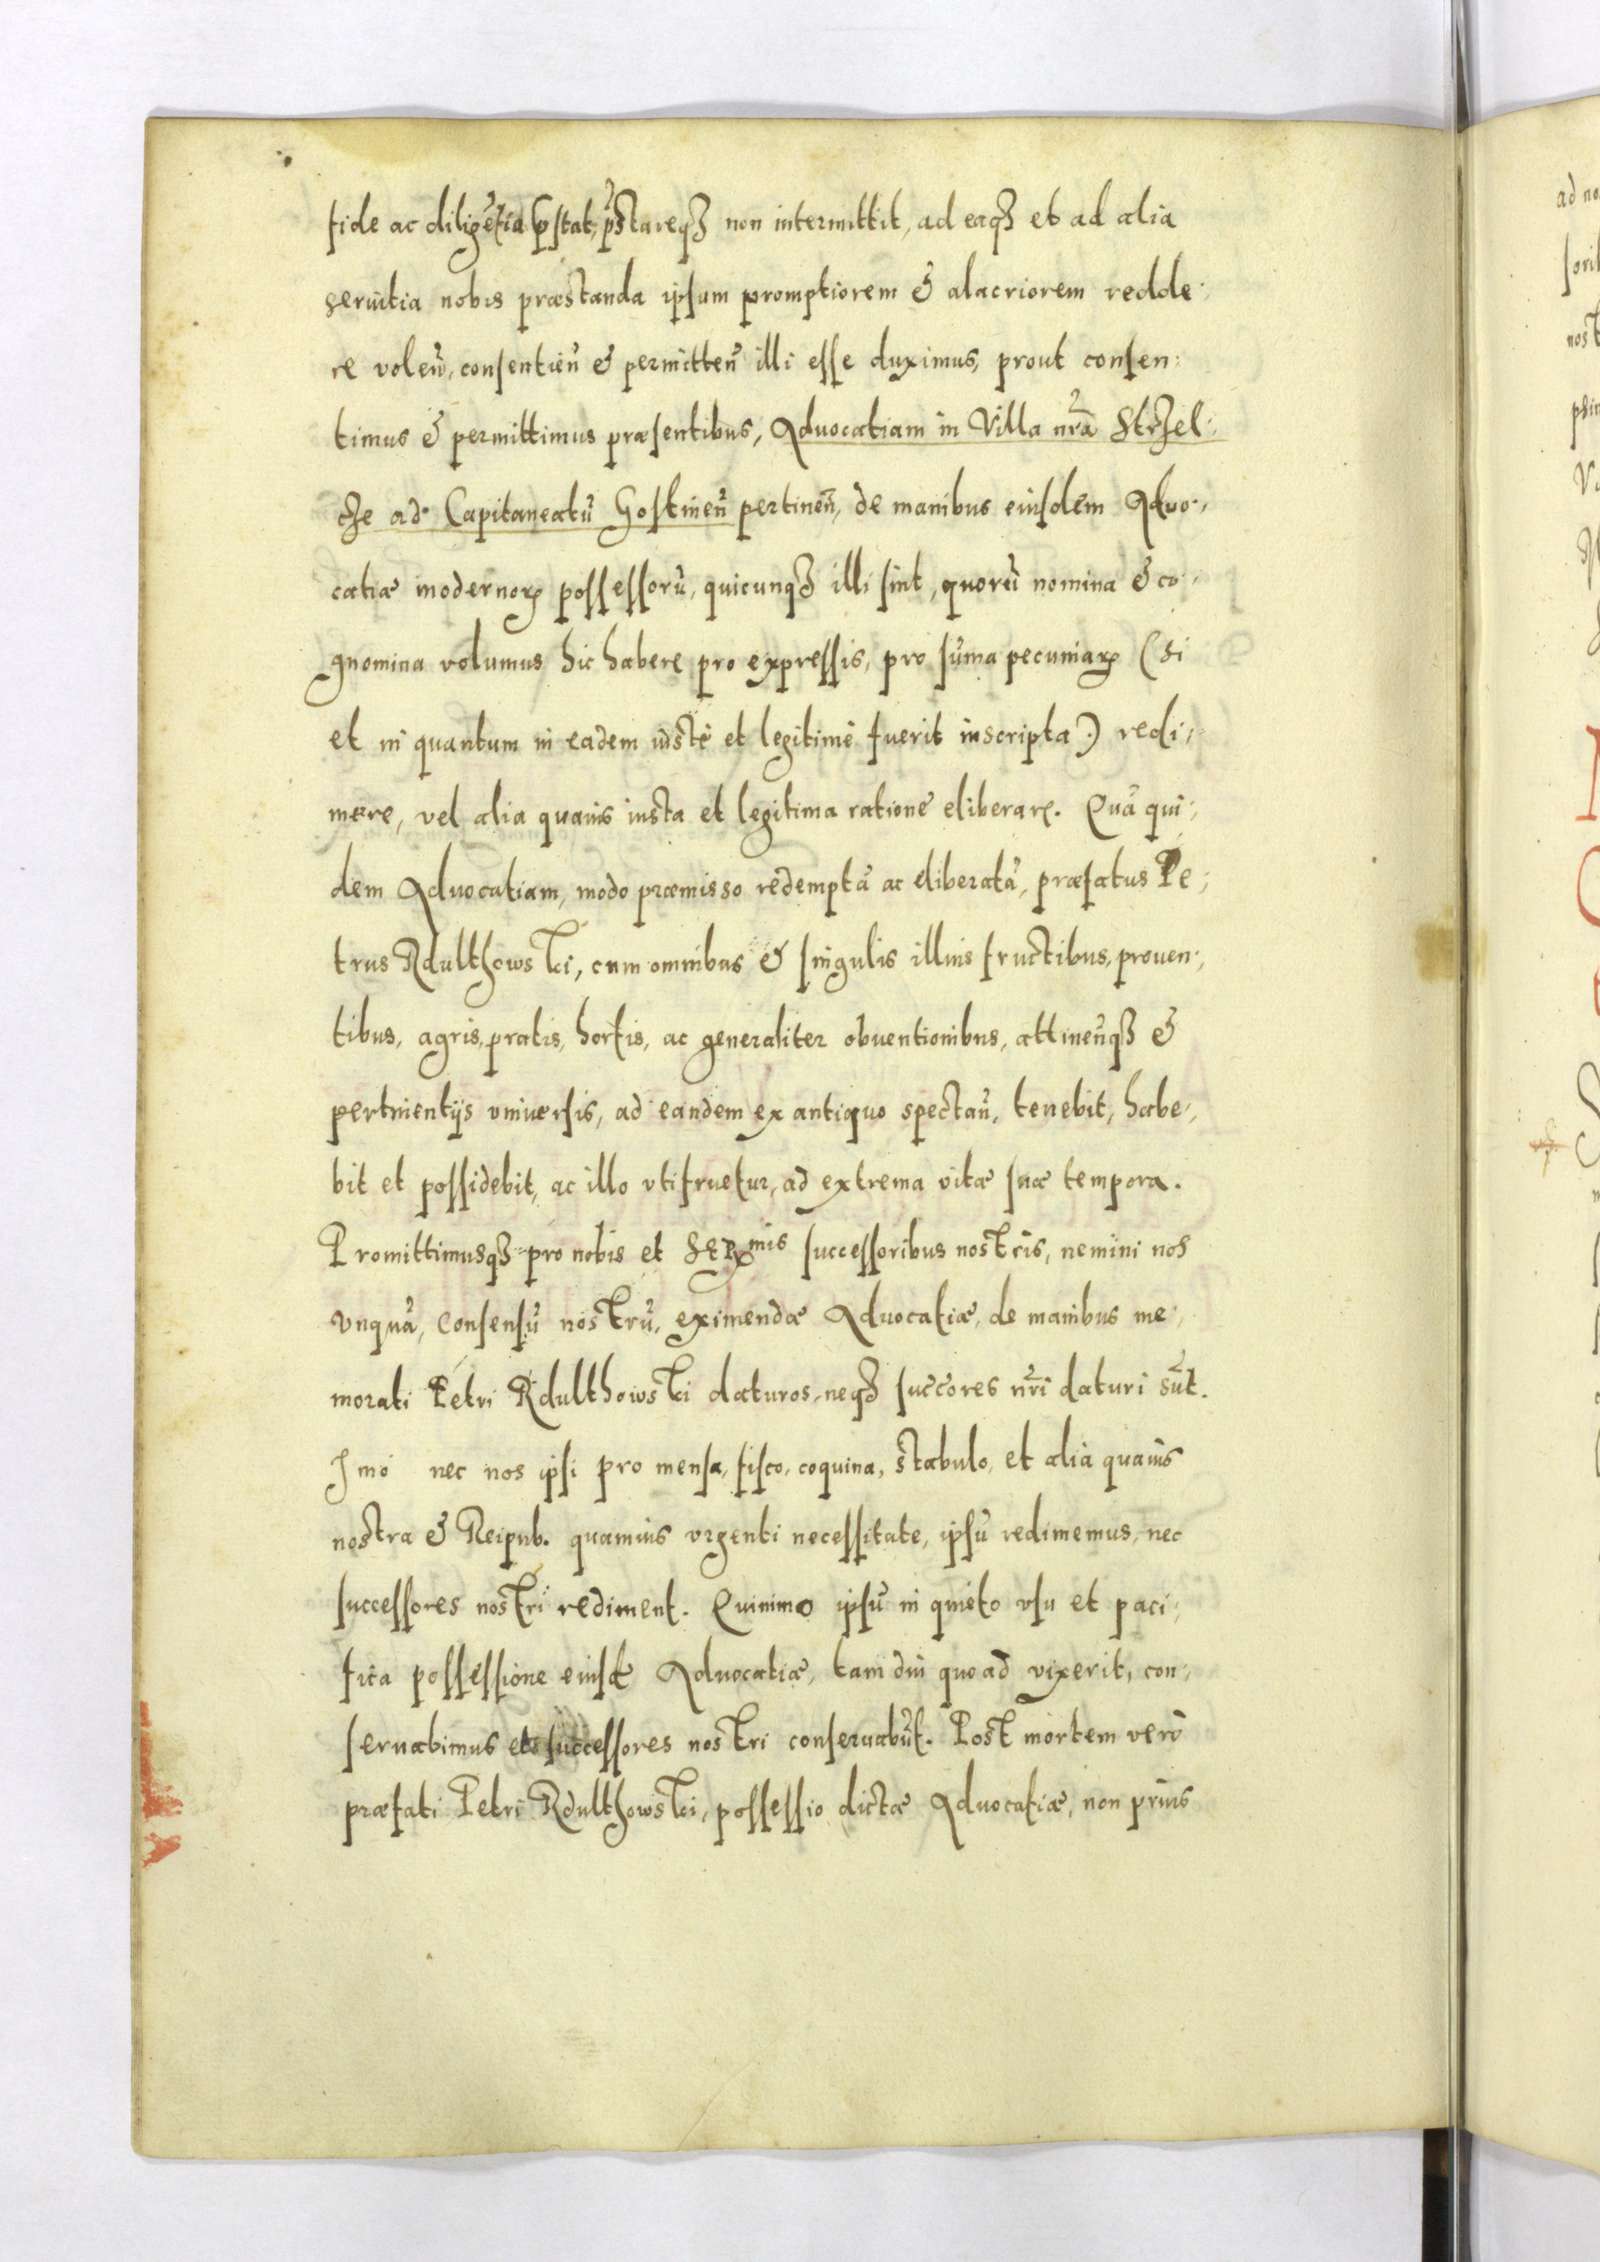 fide ac diligẽtia p̃stat, p̃stareq́ꝫ non intermittit, ad eaqꝫ et ad alia
seruitia nobis præstanda ipsum promptiorem & alacriorem redde:
re voleñ, consentieñ & permitteñ illi esse duximus, prout consen:
timus & permittimus præsentibus, Aduocatiam in Villa nr̃a Strzel:
cze ad Capitaneatũ Gostineñ pertineñ, de manibus eiusdem Aduo:
catiæ modernoꝝ possessorũ, quicunqꝫ illi sint, quorũ nomina & co:
gnomina volumus hic habere pro expressis, pro suma pecuniaꝝ (si
et in quantum in eadem iustè et legitimè fuerit inscripta) redi:
mere, vel alia quauis iusta et legitima ratione eliberare. Quã qui:
dem Aduocatiam, modo præmisso redemptã ac eliberatã, præfatus Pe:
trus Rdulthowski, cum omnibus & singulis illius fructibus, prouen:
tibus, agris, pratis, hortis, ac generaliter obuentionibus, attineñqꝫ &
pertinentijs vniuersis, ad eandem ex antiquo spectañ, tenebit, habe:
bit et possidebit, ac illo vtifruetur, ad extrema vitæ suæ tempora.
Promittimusqꝫ pro nobis et Sermis successoribus nostris, nemini nos
vnquã, consensũ nostrũ, eximendæ Aduocatiæ, de manibus me:
morati Petri Rdulthowski daturos, neqꝫ succ̃ores nr̃i daturi sũt.
Imò nec nos ipsi pro mensa, fisco, coquina, stabulo, et alia quauis
nostra & Reipub. quamuis vrgenti necessitate, ipsũ redimemus, nec
successores nostri rediment. Quinimo ipsũ in quieto vsu et paci:
fica possessione eiusd̃ Aduocatiæ, tam diu quoad vixerit, con:
seruabimus et successores nostri conseruabũt. Post mortem verò
præfati Petri Rdulthowski, possessio dictæ Aduocatiæ, non prius